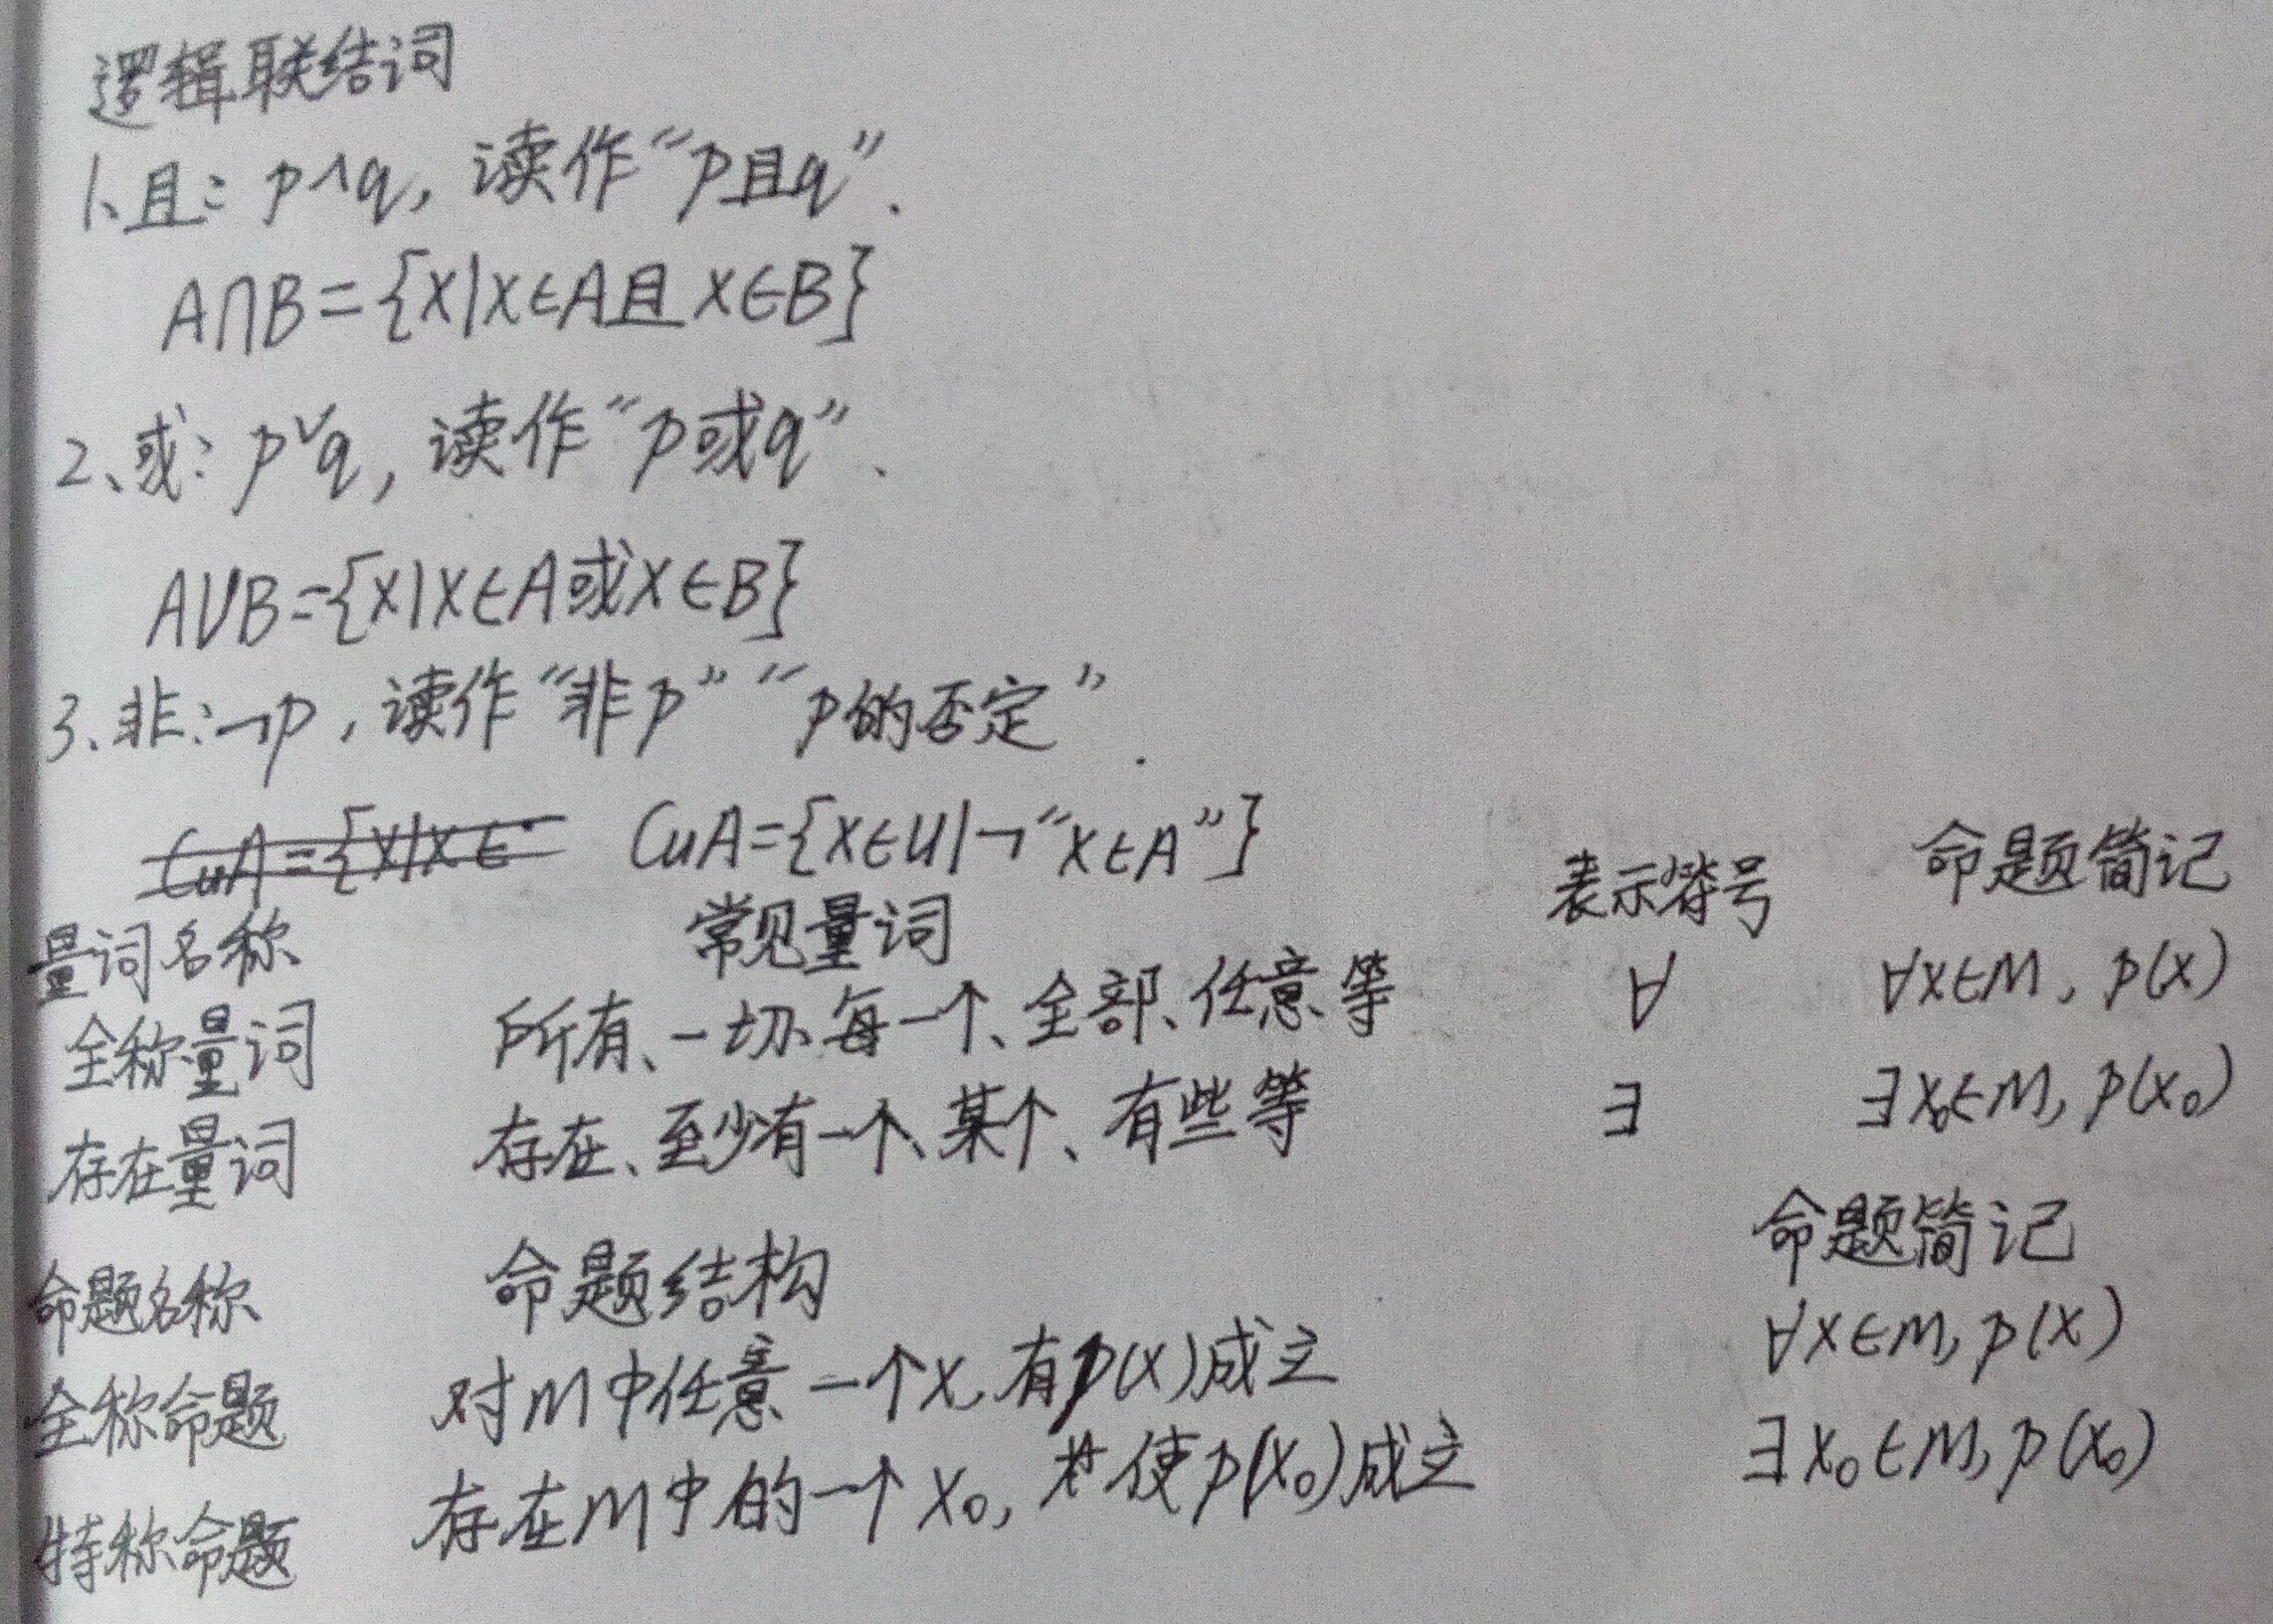 逻辑联结词
1、且：p∧q，读作“p且q”.
A∩B={x|x∈A且x∈B}
2、或：p∨q，读作“p或q”、
A∪B={x|x∈A或x∈B}
3、非：¬p，读作“非p”“p的否定”.
C∪A={x|x∈ C∪A={x∈U|¬“x∈A”}
量词名称 常见量词 表示符号 命题简记
全称量词 所有、一切、每一个、全部、任意等 ∀ ∀x∈M，p(x)
存在量词 存在、至少有一个、某个、有些等 ∃ ∃x₀∈M，p(x₀)
命题名称 命题结构 命题简记
全称命题 对M中任意一个x，有p(x)成立 ∀x∈M，p(x)
特称命题 存在M中的一个x₀，使p(x₀)成立 ∃x₀∈M，p(x₀)